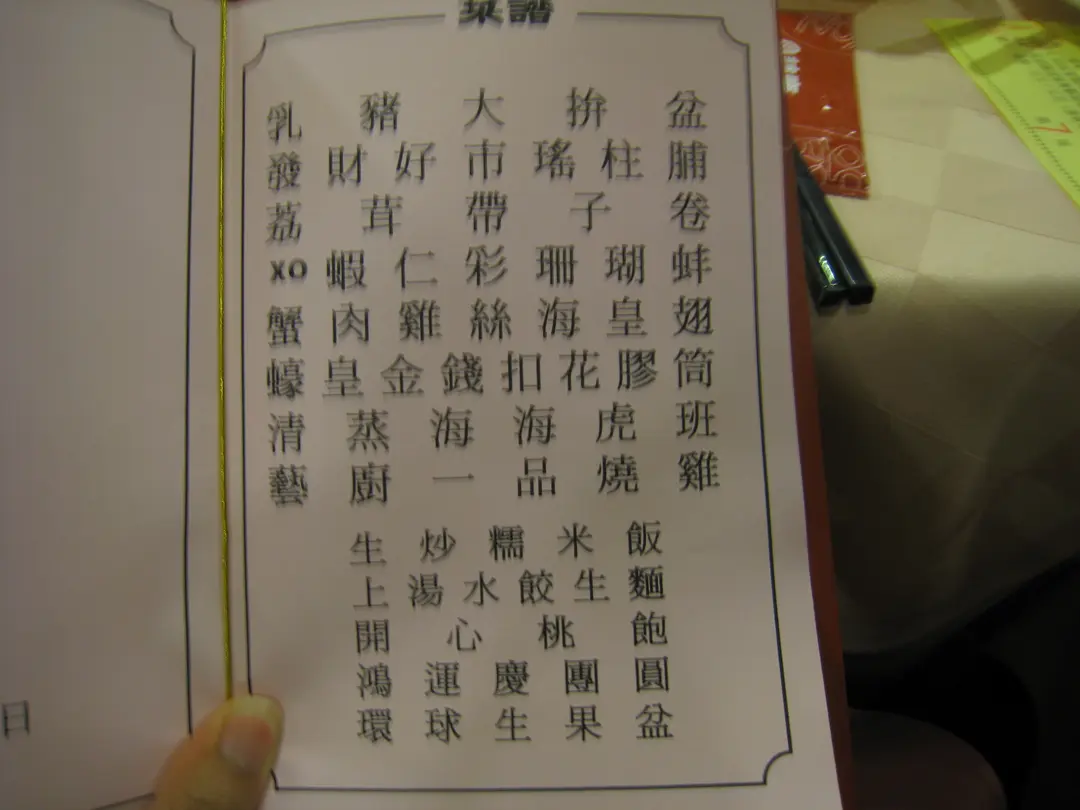 菜譜
乳豬大拚盆
發財好市瑤柱脯
荔茸帶子卷
XO蝦仁彩珊瑚蚌
蟹肉雞絲海皇翅
蠔皇金錢扣花膠筒
清蒸海海虎班
藝廚一品燒雞
生炒糯米飯
上湯水餃生麵
開心桃飽
鴻運慶團圓
環球生果盆
日
7